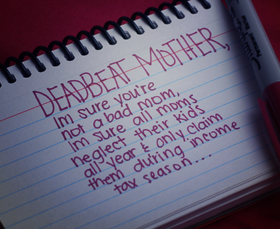 DEADBEAT MOTHER,
Im sure you're
not a bad mom,
im sure all moms
neglect their kids
all year & only claim
them during income
tax season...